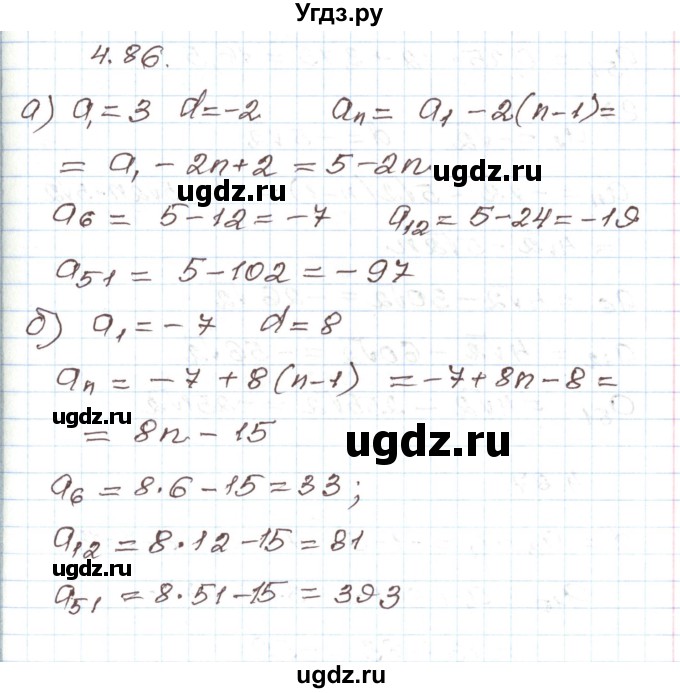 Угдз.ру
4.86.
а) a₁ = 3 d = -2 aₙ = a₁ - 2(n-1) =
= a₁ - 2n + 2 = 5 - 2n
ugdz.ru
ugdz.ru
a₆ = 5 - 12 = -7 a₁₂ = 5 - 24 = -19
a₅₁ = 5 - 102 = -97
б) a₁ = -7 d = 8
aₙ = -7 + 8(n-1) = -7 + 8n - 8 =
ugdz.ru
= 8n - 15
ugdz.ru
a₆ = 8·6 - 15 = 33;
a₁₂ = 8·12 - 15 = 81
ugdz.ru
a₅₁ = 8·51 - 15 = 393
ugdz.ru